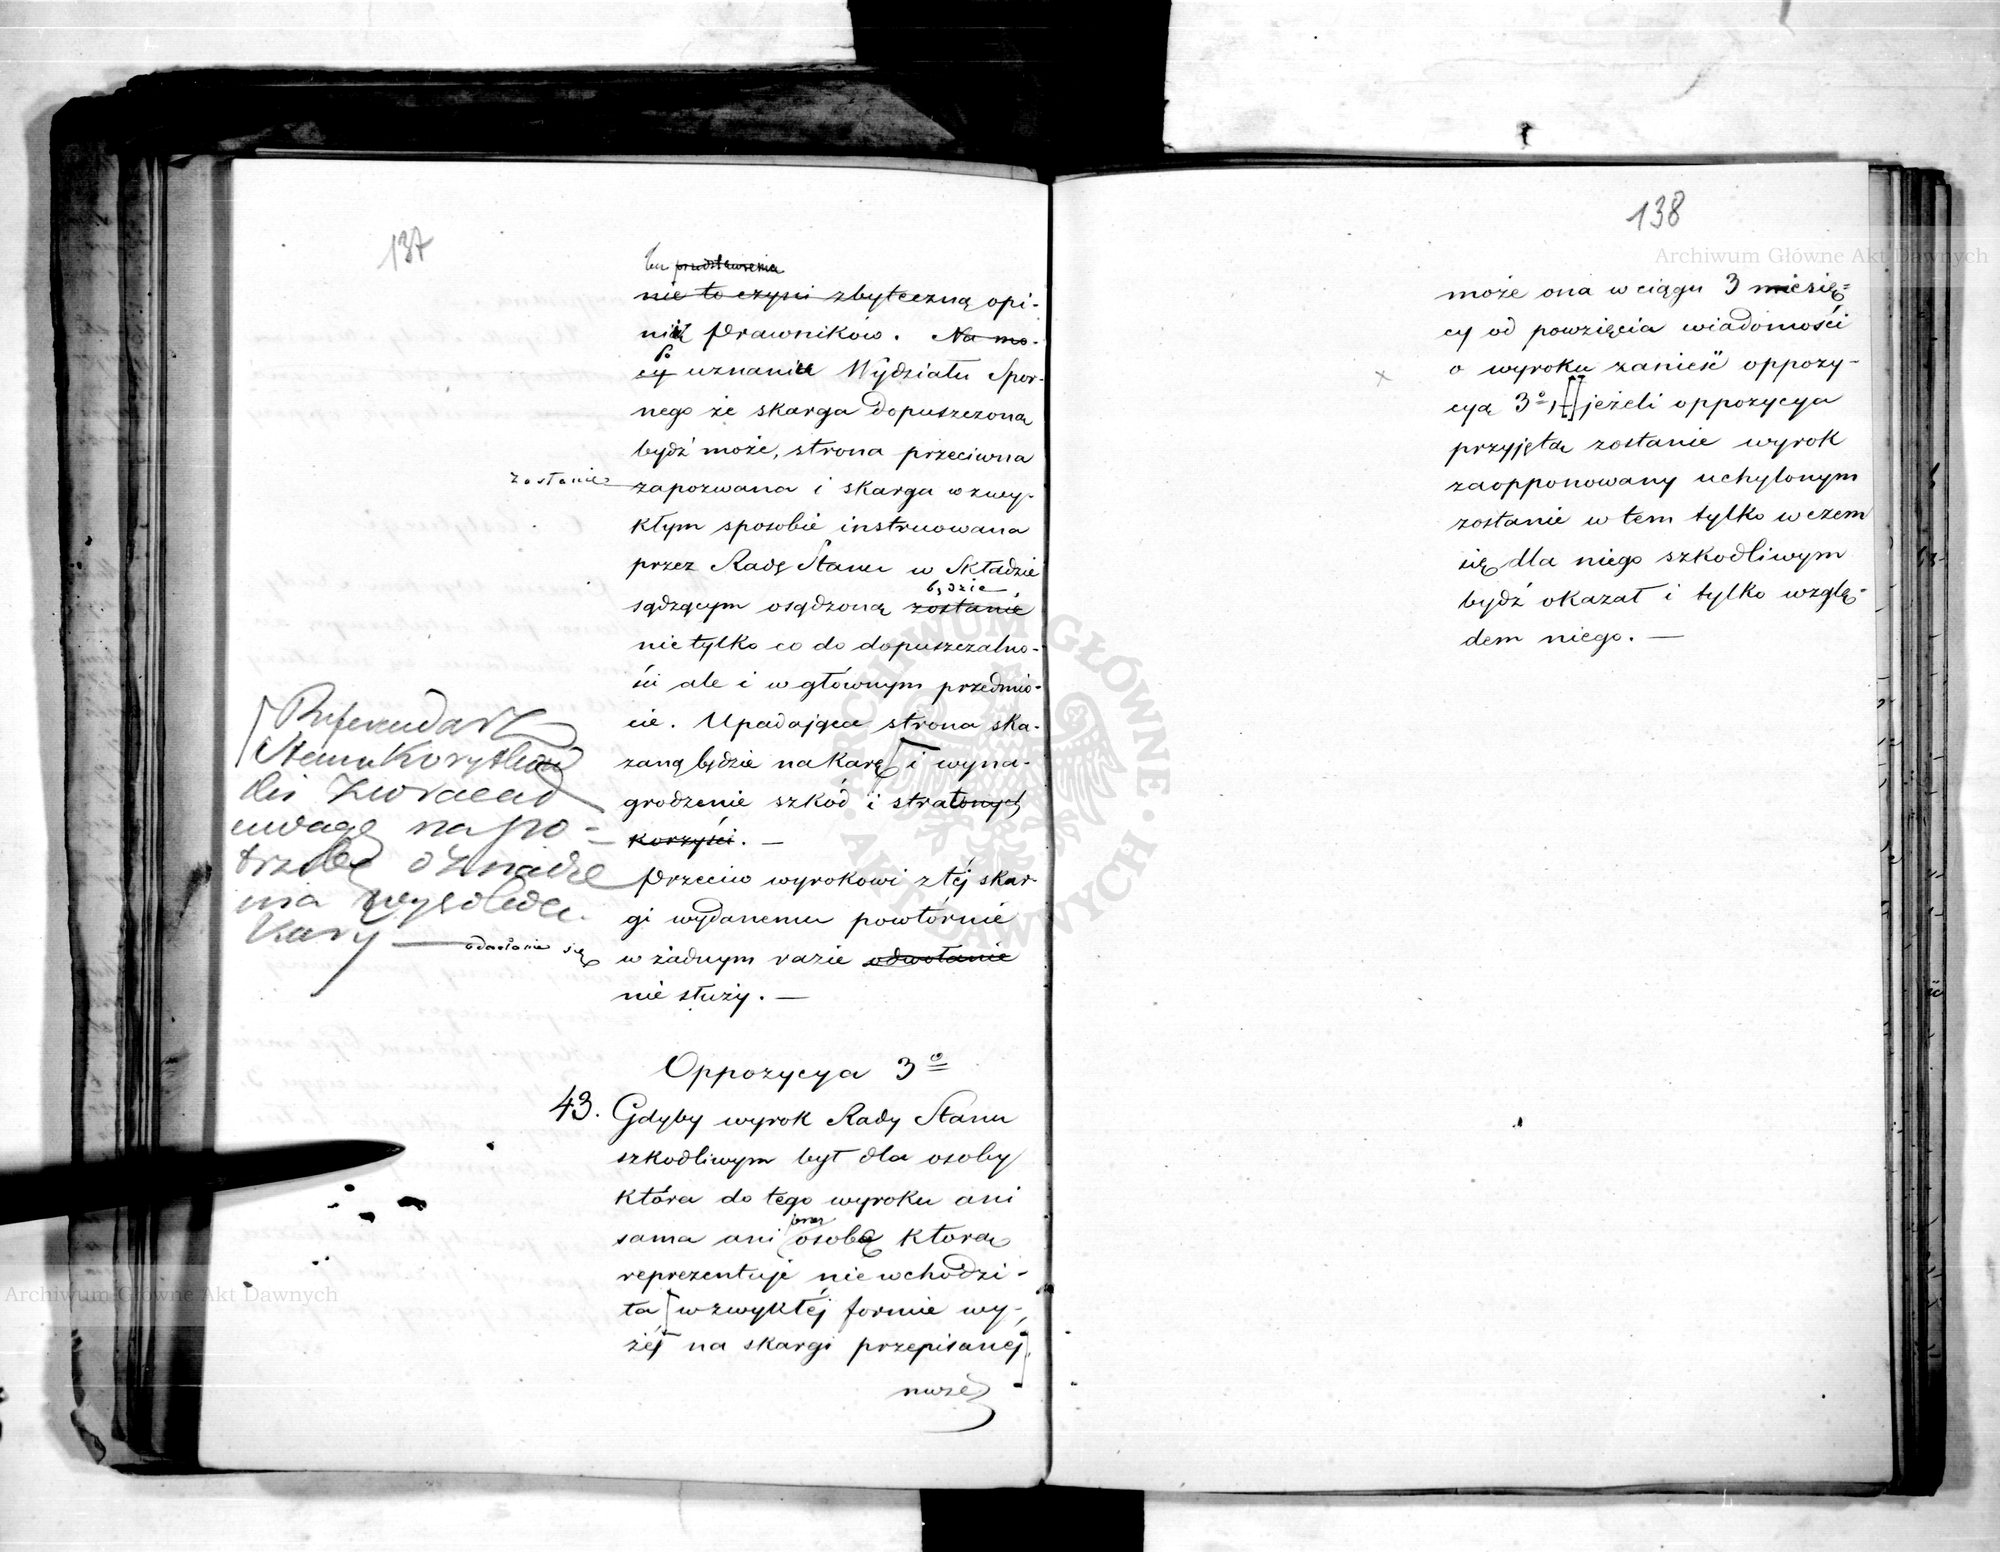 137
bu przedstawienia
nie to czyni zbyteczną opi-
nią Prawników. Na mo-
Po
cy uznania Wydziału Spor-
nego że skarga dopuszczoną
bydź może, strona przeciwna
zostanie
zapozwana i skarga w zwy-
kłym sposobie instruowana
przez Radę Stanu w Składzie
będzie
sądzącym osądzoną zostanie
nie tylko co do dopuszczalno-
ści ale i w głównym przedmio-
cie. Upadająca strona ska-
zaną będzie na karę i wyna-
grodzenie szkód i stratonych
korzyści. —
Referendarz
Stanu Korytkow
ski zwracał
uwagę na po-
trzebę oznacze
nia wysokości
Kary —
Przeciw wyrokowi z téj skar-
gi wydanemu powtórnie
odwołanie się
w żadnym razie odwołanie
nie służy. —
Oppozycya 3º
43. Gdyby wyrok Rady Stanu
szkodliwym był dla osoby
która do tego wyroku ani
przez
sama ani osobę która
reprezentuje nie wchodzi-
ła w zwykłéj formie wy-
żéj na skargi przepisanéj
może
138
może ona w ciągu 3 miesię-
cy od powzięcia wiadomości
o wyroku zanieść oppozy-
cyą 3º, jeżeli oppozycya
przyjętą zostanie wyrok
zaopponowany uchylonym
zostanie w tem tylko w czem
się dla niego szkodliwym
bydź okazał i tylko wzglę-
dem niego. —
Archiwum Główne Akt Dawnych
Archiwum Główne Akt Dawnych
ARCHIWUM GŁÓWNE AKT DAWNYCH